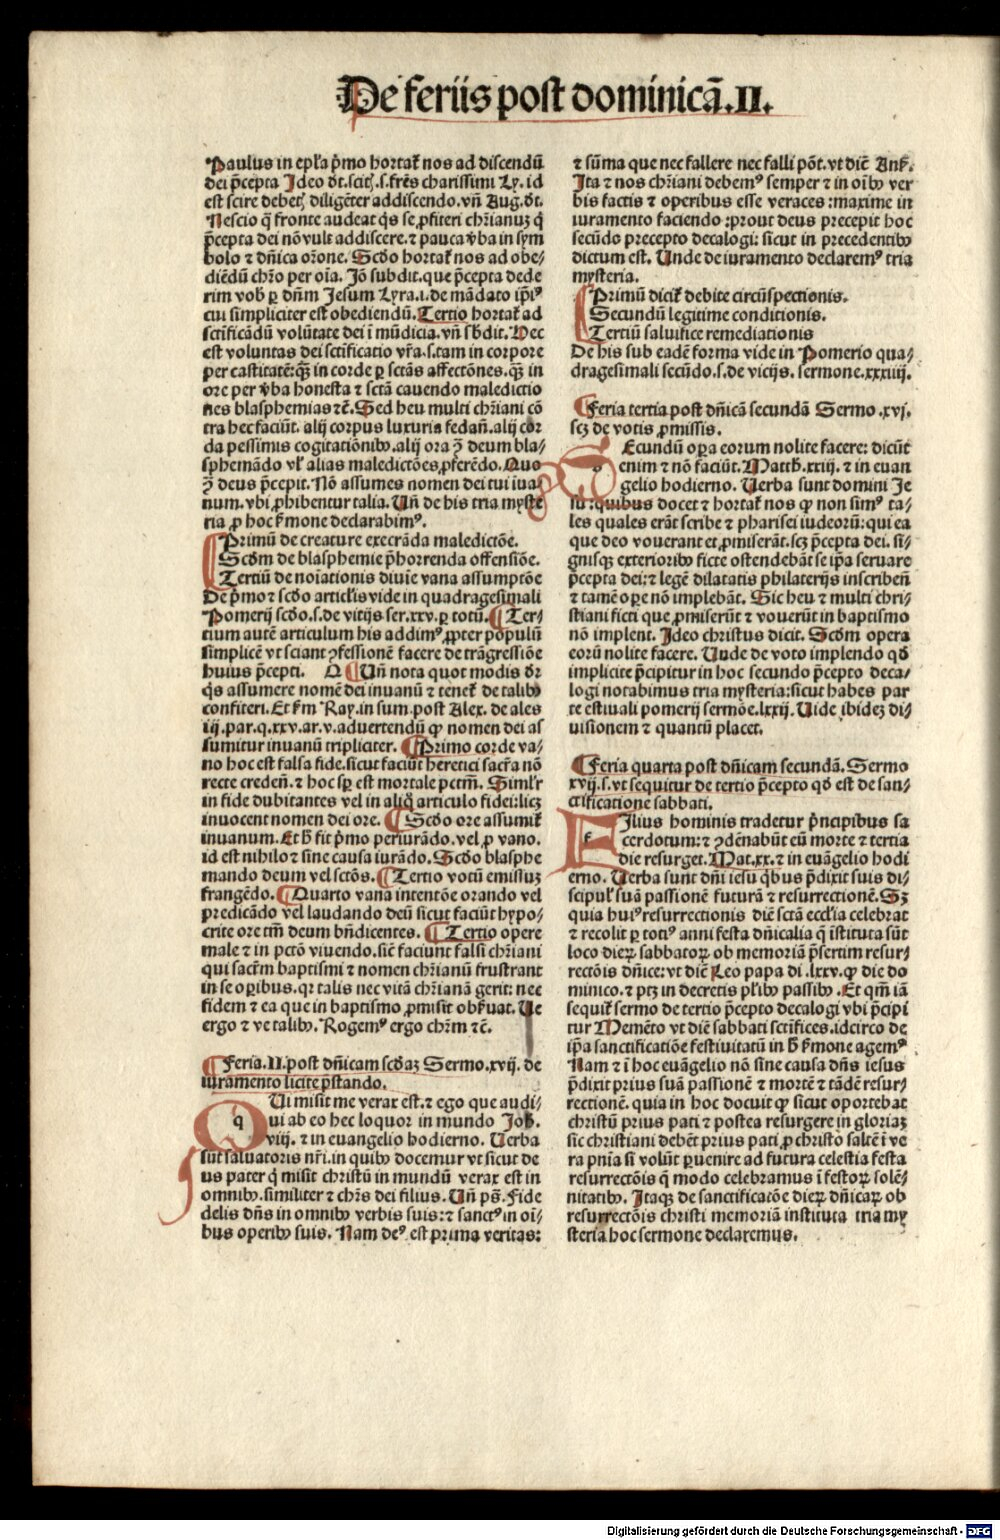 De feriis post dominicã.II.
Paulus in epl'a p̃mo hortat᷑ nos ad discendũ
dei p̃cepta Ideo dt̃. scitꝫ .s. frẽs charissimi Ly. id
est scire debetꝫ diligẽter addiscendo. vñ Aug. dt̃.
Nescio q̃ fronte audeat q̃s se ꝓfiteri chr̃ianuꝫ q̃
p̃cepta dei nõ vult addiscere. ⁊ pauca v̾ba in sym
bolo ⁊ dñica or̃one. Scd̾o hortat᷑ nos ad obe-
diẽdũ chr̃o per oĩa. Jõ subdit. que p̃cepta dede
rim vob̾ ꝑ dñm Jesum Lyra. i. de mãdato ip̃iꝰ
cui simpliciter est obediendũ. Tertio hortat᷑ ad
sctĩficãdũ volũtate dei ĩ mũdicia. vñ sb̾dit. Hec
est voluntas dei sctĩficatio vr̃a. s. tam in corpore
per castitatẽ: q̃ꝫ in corde ꝑ sctãs affectõnes. q̃ꝫ in
ore per v̾ba honesta ⁊ sctã cauendo maledictio
nes blasphemias ⁊c̃. Sed heu multi chr̃iani cõ
tra hec faciũt. alij corpus luxuria fedañ. alij cor
da pessimis cogitatiõnibꝰ. alij ora ꝯ̃ deum bla-
sphemãdo vl' alias maledictões, ꝓferẽdo. Quo
ꝯ̃ deus p̃cepit. Nõ assumes nomen dei tui ĩua
num. vbi ꝓhibentur talia. Vñ de his tria myste
ria ꝑ hoc s̾mone declarabimꝰ.
Primũ de creature execrãda maledictõe.
Scd̾m de blasphemie p̃horrenda offensiõe.
Tertiũ de noĩationis diuĩe vana assumptõe
De p̃mo ⁊ scd̾o articl'is vide in quadragesimali
Pomerij scd̾o. s. de vitijs ser. xxv. ꝑ totũ. Ter-
tium autẽ articulum his addimꝰ ꝓpter populũ
simplicẽ vt sciant ꝯfessionẽ facere de trãgressiõe
huius p̃cepti. Q Vñ nota quot modis dr̃
q̃s assumere nomẽ dei inuanũ ⁊ tenet᷑ de talibꝰ
confiteri. Et s̾m Ray. in sum. post Alex. de ales
iij. par. q. xxv. ar. v. aduertendũ ꝙ nomen dei as
sumitur inuanũ tripliciter. Primo corde va-
no hoc est falsa fide. sicut faciũt heretici sacr̃a nõ
recte credeñ. ⁊ hoc sp̃ est mortale pctm̃. Siml'r
in fide dubitantes vel in aliq̃ articulo fidei: licꝫ
inuocent nomen dei ore. Scd̾o ore assumit᷑
inuanum. Et h̾ fit p̃mo periurãdo. vel ꝓ vano.
id est nihilo ⁊ sine causa iurãdo. Scd̾o blasphe
mando deum vel sctõs. Tertio votũ emissuꝫ
frangẽdo. Quarto vana intentõe orando vel
predicãdo vel laudando deũ sicut faciũt hypo-
crite ore tm̃ deum bñdicentes. Tertio opere
male ⁊ in pctõ viuendo. sic̃ faciunt falsi chr̃iani
qui sacr̃m baptismi ⁊ nomen chr̃ianũ frustrant
in se oꝑibus. qꝛ talis nec vitã chr̃ianã gerit: nec
fidem ⁊ ea que in baptismo ꝓmisit obs̾uat. Ve
ergo ⁊ ve talibꝰ. Rogemꝰ ergo chr̃m ⁊c̃.
Feria.II. post dñicam scd̾aꝫ Sermo. xvij. de
iuramento licite p̃stando.
Qui misit me verax est. ⁊ ego que audi-
ui ab eo hec loquor in mundo Joh̃.
viij. ⁊ in euangelio hodierno. Verba
sũt saluatoris nr̃i. in quibꝰ docemur vt sicut de
us pater q̃ misit christũ in mundũ verax est in
omnibꝰ. similiter ⁊ chr̃s dei filius. Vñ ps̃. Fide
delis dñs in omnibꝰ verbis suis: ⁊ sanctꝰ in oĩ-
bus operibꝰ suis. Nam deꝰ est prima veritas:
⁊ sũma que nec fallere nec falli põt. vt dic̃ Ans̾.
Ita ⁊ nos chr̃iani debemꝰ semper ⁊ in oĩbꝰ ver
bis factis ⁊ operibus esse veraces: maxime in
iuramento faciendo: prout deus precepit hoc
secũdo precepto decalogi: sicut in precedentibꝰ
dictum est. Unde de iuramento declaremꝰ tria
mysteria.
Primũ dicit᷑ debite circũspectionis.
Secundũ legitime conditionis.
Tertiũ saluifice remediationis
De his sub eadẽ forma vide in Pomerio qua-
dragesimali secũdo. s. de vicijs. sermone. xxxiiij.
Feria tertia post dñicã secundã Sermo .xvj.
scꝫ de votis ꝓmissis.
Secundũ oꝑa eorum nolite facere: dicũt
enim ⁊ nõ faciũt. Matth̾. xxiij. ⁊ in euan
gelio hodierno. Verba sunt domini Je
su: quibus docet ⁊ hortat᷑ nos ꝙ non simꝰ ta-
les quales erãt scribe ⁊ pharisei iudeorũ: qui ea
que deo vouerant et ꝓmiserãt. scꝫ p̃cepta dei. si-
gnisqꝫ exterioribꝰ ficte ostendebãt se ip̃a seruare
p̃cepta dei: ⁊ legẽ dilatatis philaterijs inscribeñ
⁊ tamẽ oꝑe nõ implebãt. Sic heu ⁊ multi chri-
stiani ficti que ꝓmiserũt ⁊ vouerũt in baptismo
nõ implent. Ideo christus dicit. Scd̾m opera
eorũ nolite facere. Unde de voto implendo qd̾
implicite p̃cipitur in hoc secundo p̃cepto deca-
logi notabimus tria mysteria: sicut habes par
te estiuali pomerij sermõe. lxxij. Vide ibideꝫ di-
uisionem ⁊ quantũ placet.
Feria quarta post dñicam secundã. Sermo
xvij. s. vt sequitur de tertio p̃cepto qd̾ est de san-
ctificatione sabbati.
Filius hominis tradetur p̃ncipibus sa
cerdotum: ⁊ ꝯdẽnabũt eũ morte ⁊ tertia
die resurget. Mat. xx. ⁊ in euãgelio hodi
erno. Verba sunt dñi iesu q̃bus p̃dixit suis di-
scipul' suã passionẽ futurã ⁊ resurrectionẽ. Sꝫ
quia huiꝰ resurrectionis diẽ sctã eccl'ia celebrat
⁊ recolit ꝑ totiꝰ anni festa dñicalia q̃ ĩstituta sũt
loco dieꝝ sabbatoꝝ ob memoriã p̃sertim resur-
rectõis dñice: vt dic̃ Leo papa di. lxxv. ꝙ die do
minico. ⁊ ptꝫ in decretis pl'ibꝰ passibꝰ. Et qm̃ iã
sequit᷑ sermo de tertio p̃cepto decalogi vbi p̃cipi
tur Memẽto vt diẽ sabbati sctĩfices. idcirco de
ip̃a sanctificatiõe festiuitatũ in h̾ s̾mone agemꝰ
Nam ⁊ ĩ hoc euãgelio nõ sine causa dñs iesus
p̃dixit prius suã passionẽ ⁊ mortẽ ⁊ tãdẽ resur-
rectionẽ. quia in hoc docuit ꝙ sicut oportebat
christũ prius pati ⁊ postea resurgere in gloriaꝫ
sic christiani debẽt prius pati ꝓ christo saltẽ ĩ ve
ra pñia si volũt ꝑuenire ad futura celestia festa
resurrectõis q̃ modo celebramus ĩ festoꝝ solẽ-
nitatibꝰ. Itaqꝫ de sanctificatõe dieꝝ dñicaꝝ ob
resurrectõis christi memoriã instituta tria my
steria hoc sermone declaremus.
Digitalisierung gefördert durch die Deutsche Forschungsgemeinschaft - DFG